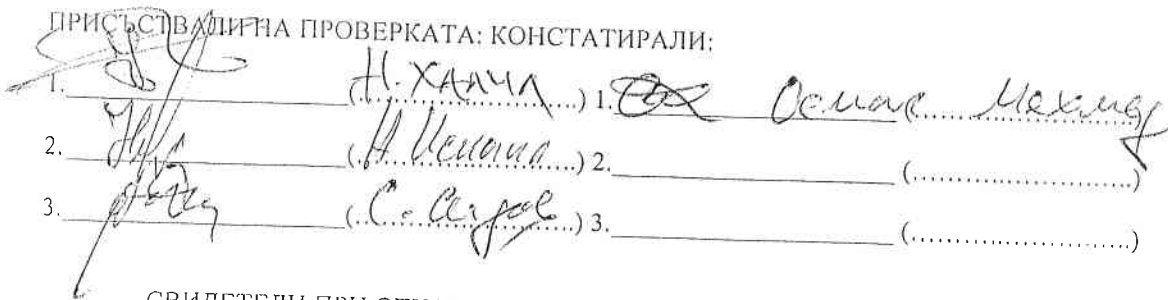 ПРИСЪСТВАЛИ НА ПРОВЕРКАТА: КОНСТАТИРАЛИ:
1. (Н. ХАЛИЛ) 1. Осман (Мехмед
2. (Н. Исмаил) 2. (..............................)
3. (С. ) 3. (..............................)
СВИДЕТЕЛИ ПРИ